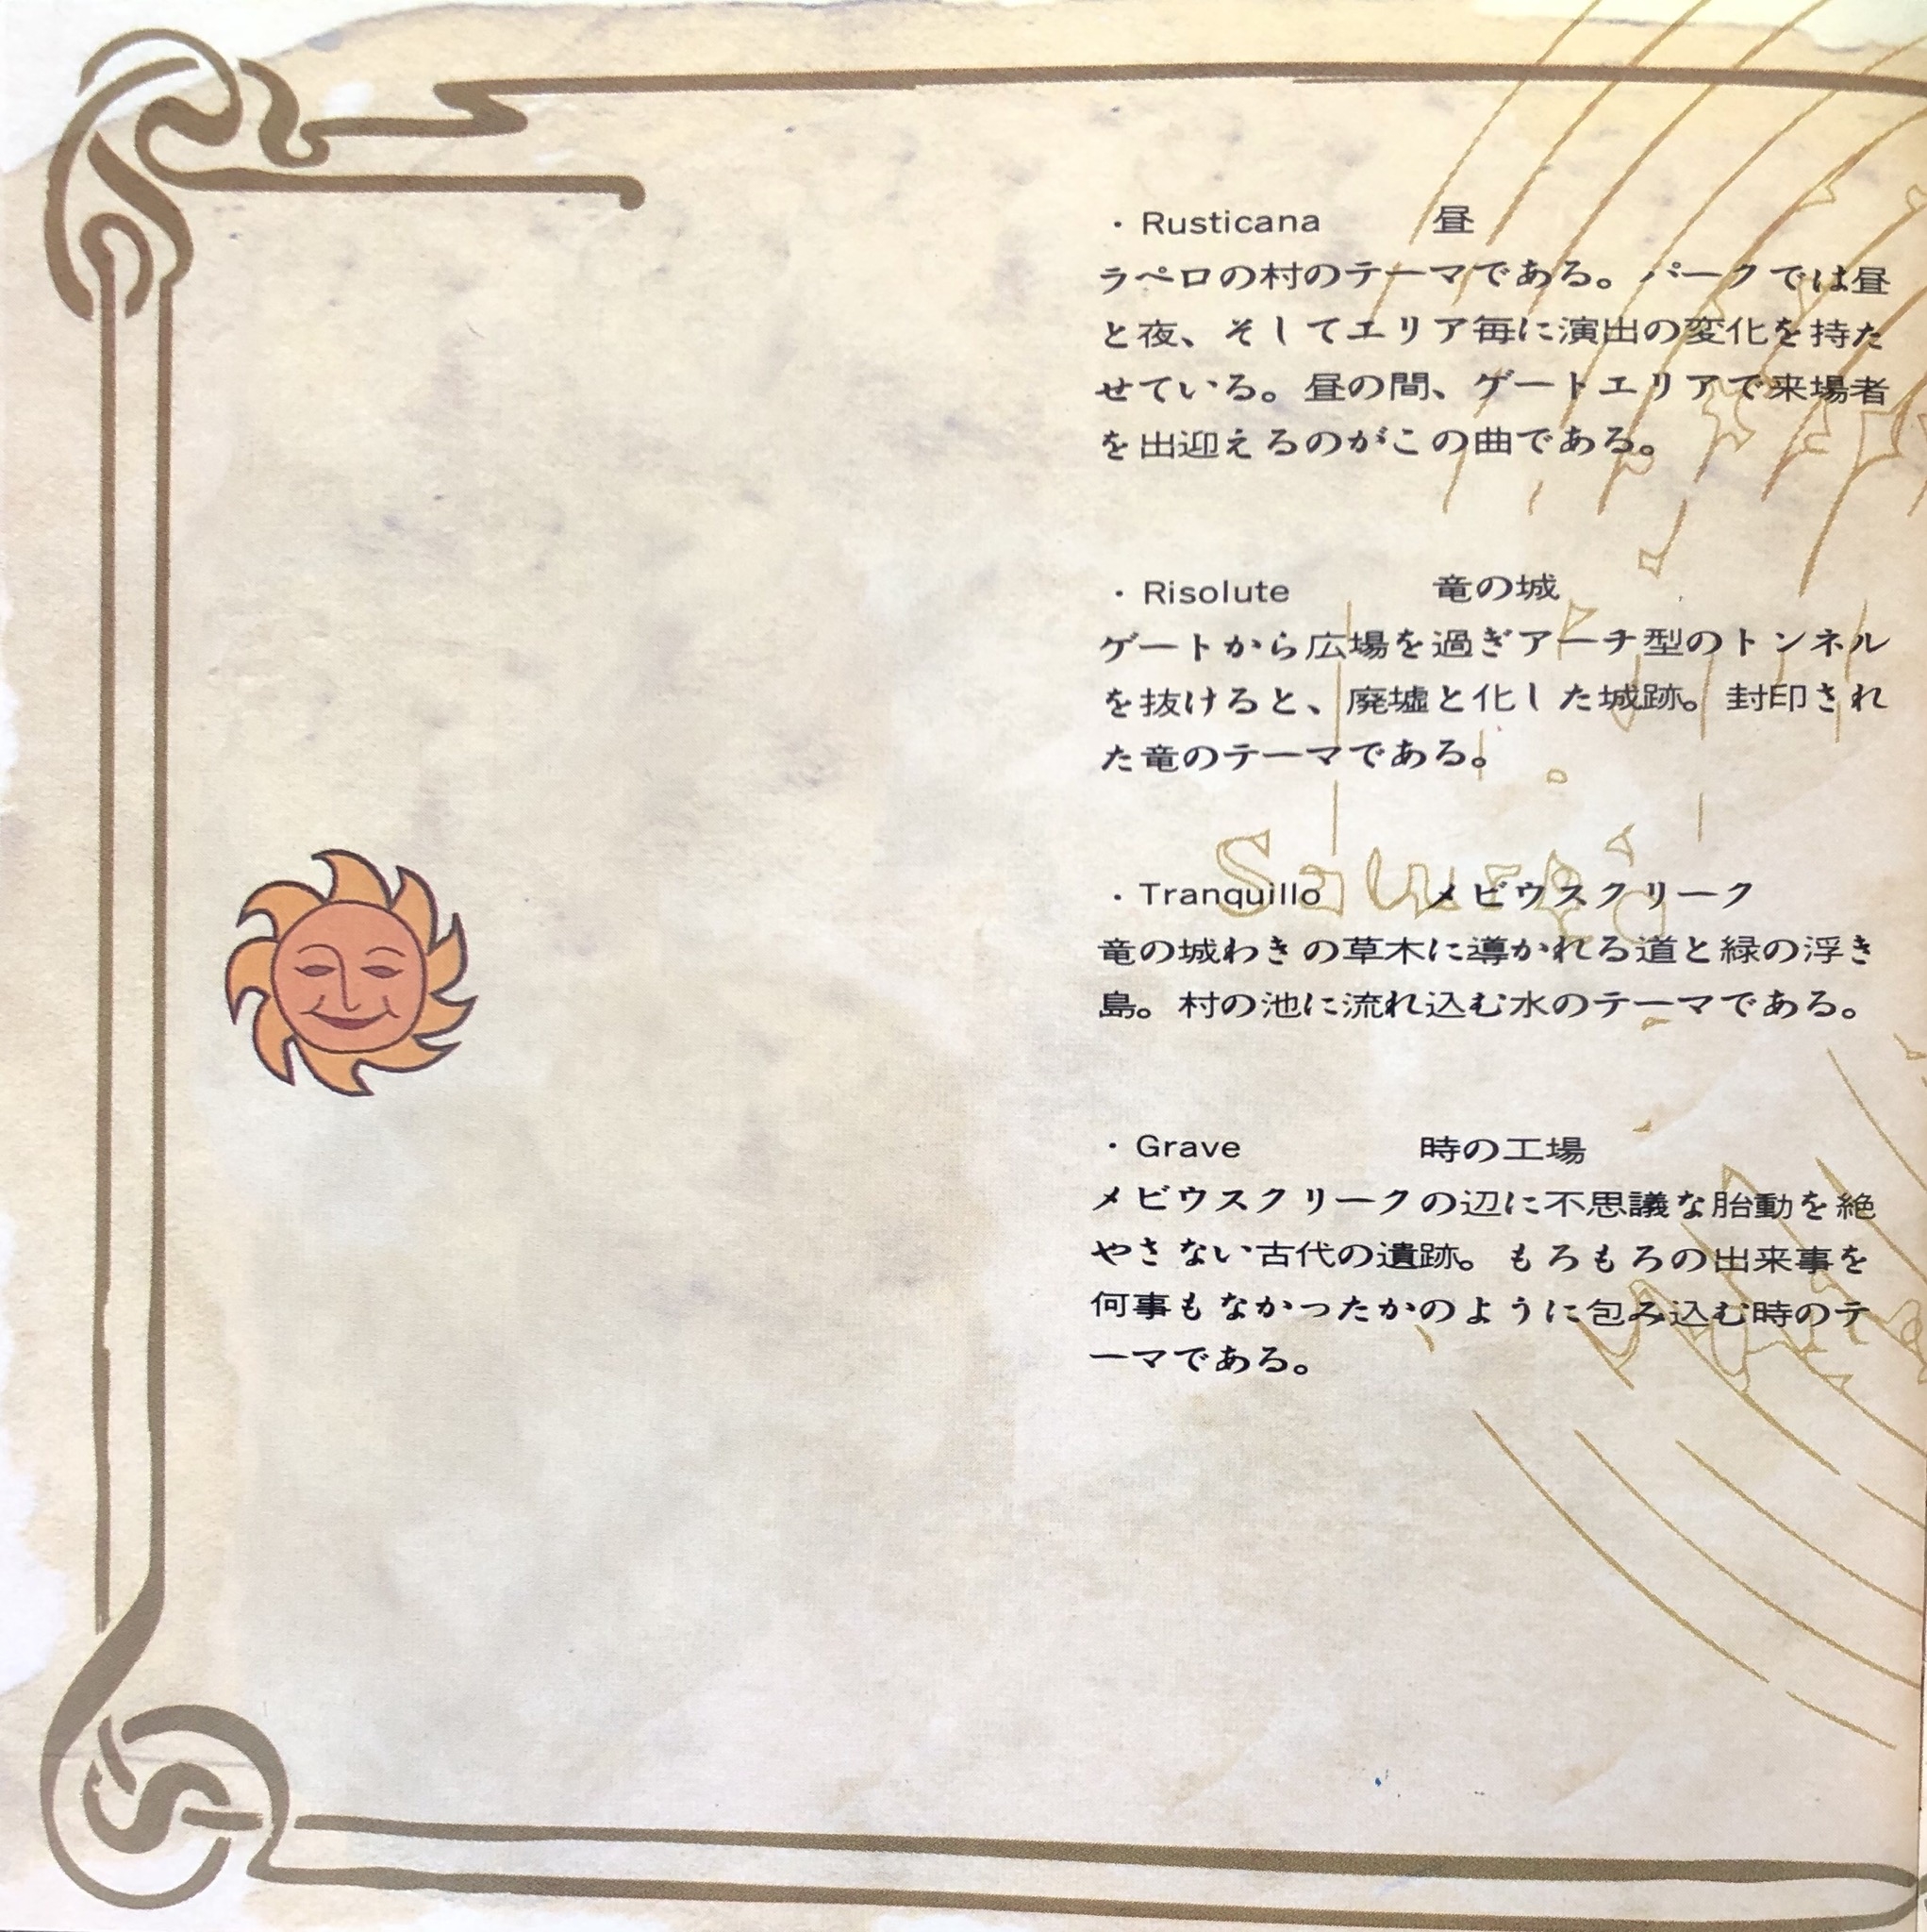 ・Rusticana 昼
ラペロの村のテーマである。パークでは昼
と夜、そしてエリア毎に演出の変化を持た
せている。昼の間、ゲートエリアで来場者
を出迎えるのがこの曲である。
・Risolute 竜の城
ゲートから広場を過ぎアーチ型のトンネル
を抜けると、廃墟と化した城跡。封印され
た竜のテーマである。
・Tranquillo メビウスクリーク
竜の城わきの草木に導かれる道と緑の浮き
島。村の池に流れ込む水のテーマである。
・Grave 時の工場
メビウスクリークの辺に不思議な胎動を絶
やさない古代の遺跡。もろもろの出来事を
何事もなかったかのように包み込む時のテ
ーマである。